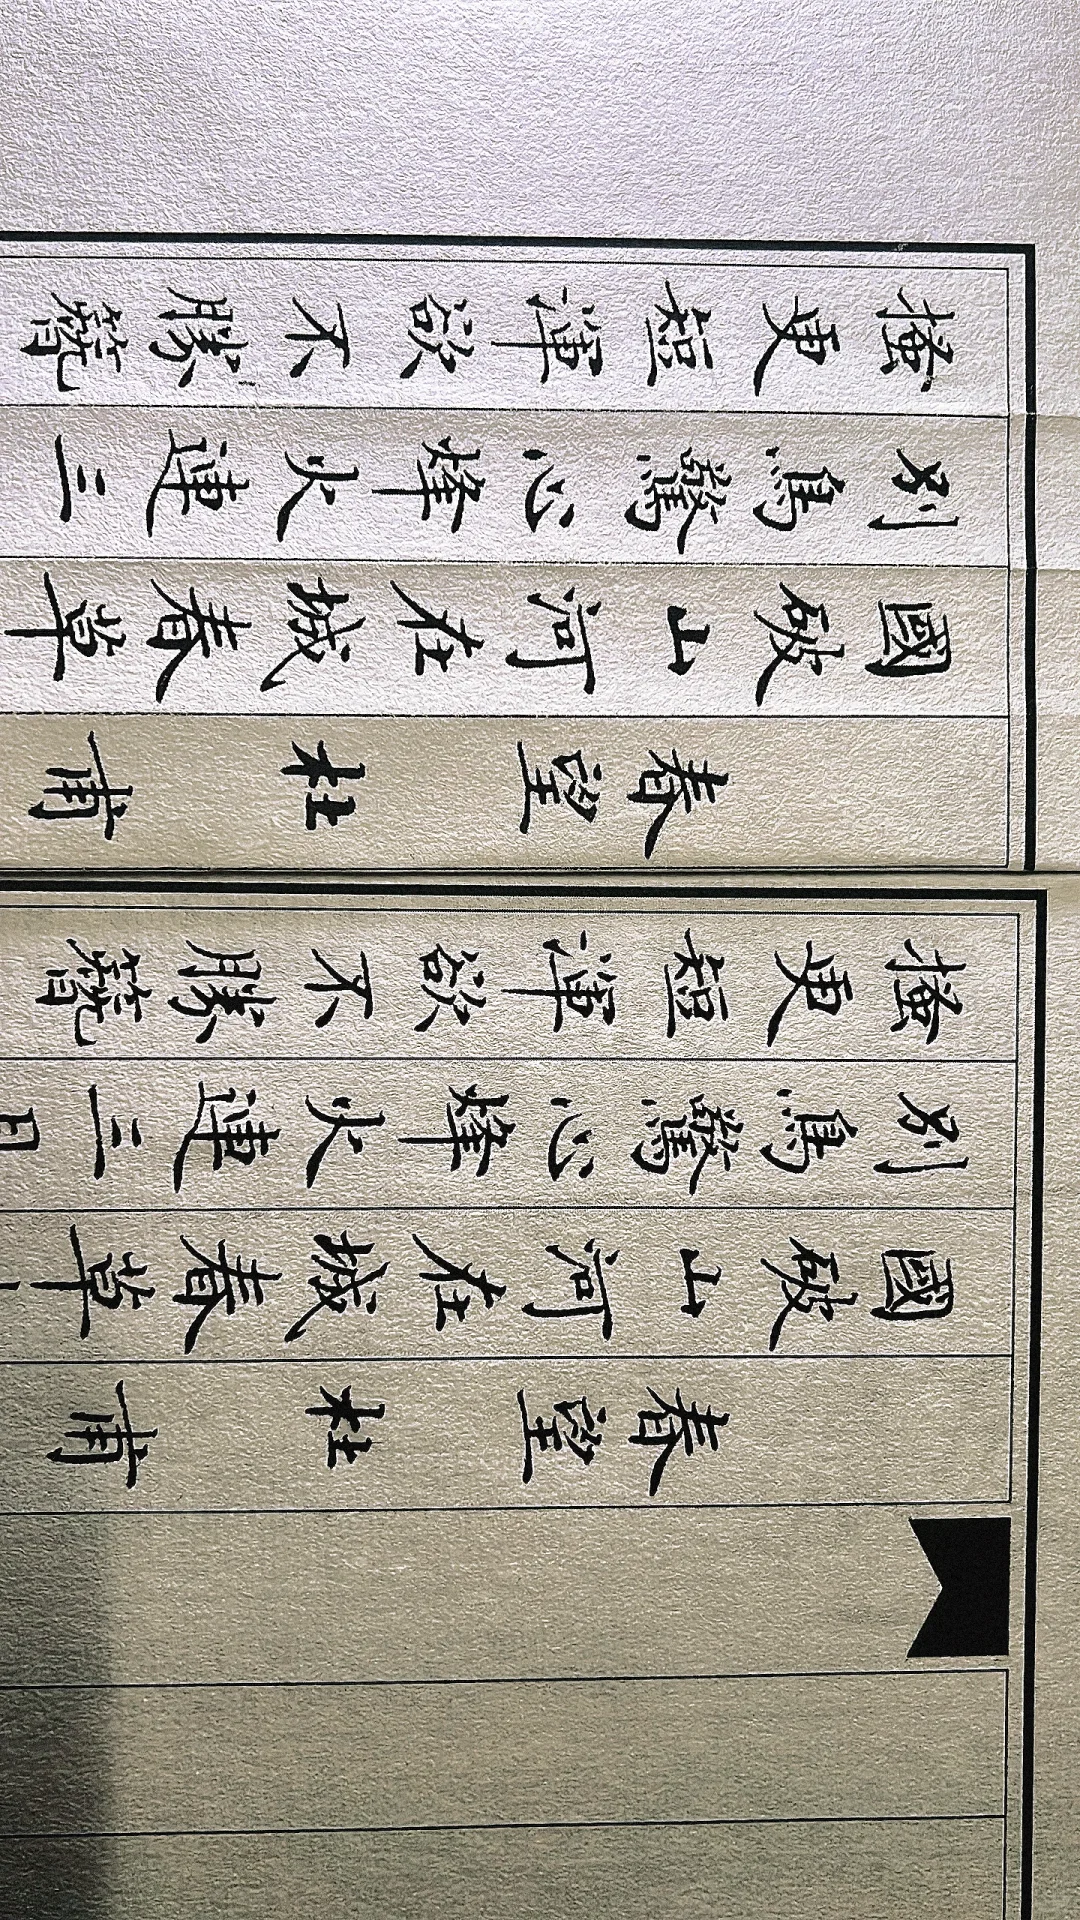 春望 杜甫
國破山河在城春草
別鳥驚心烽火連三
搔更短渾欲不勝簪
春望 杜甫
國破山河在城春草
別鳥驚心烽火連三
搔更短渾欲不勝簪